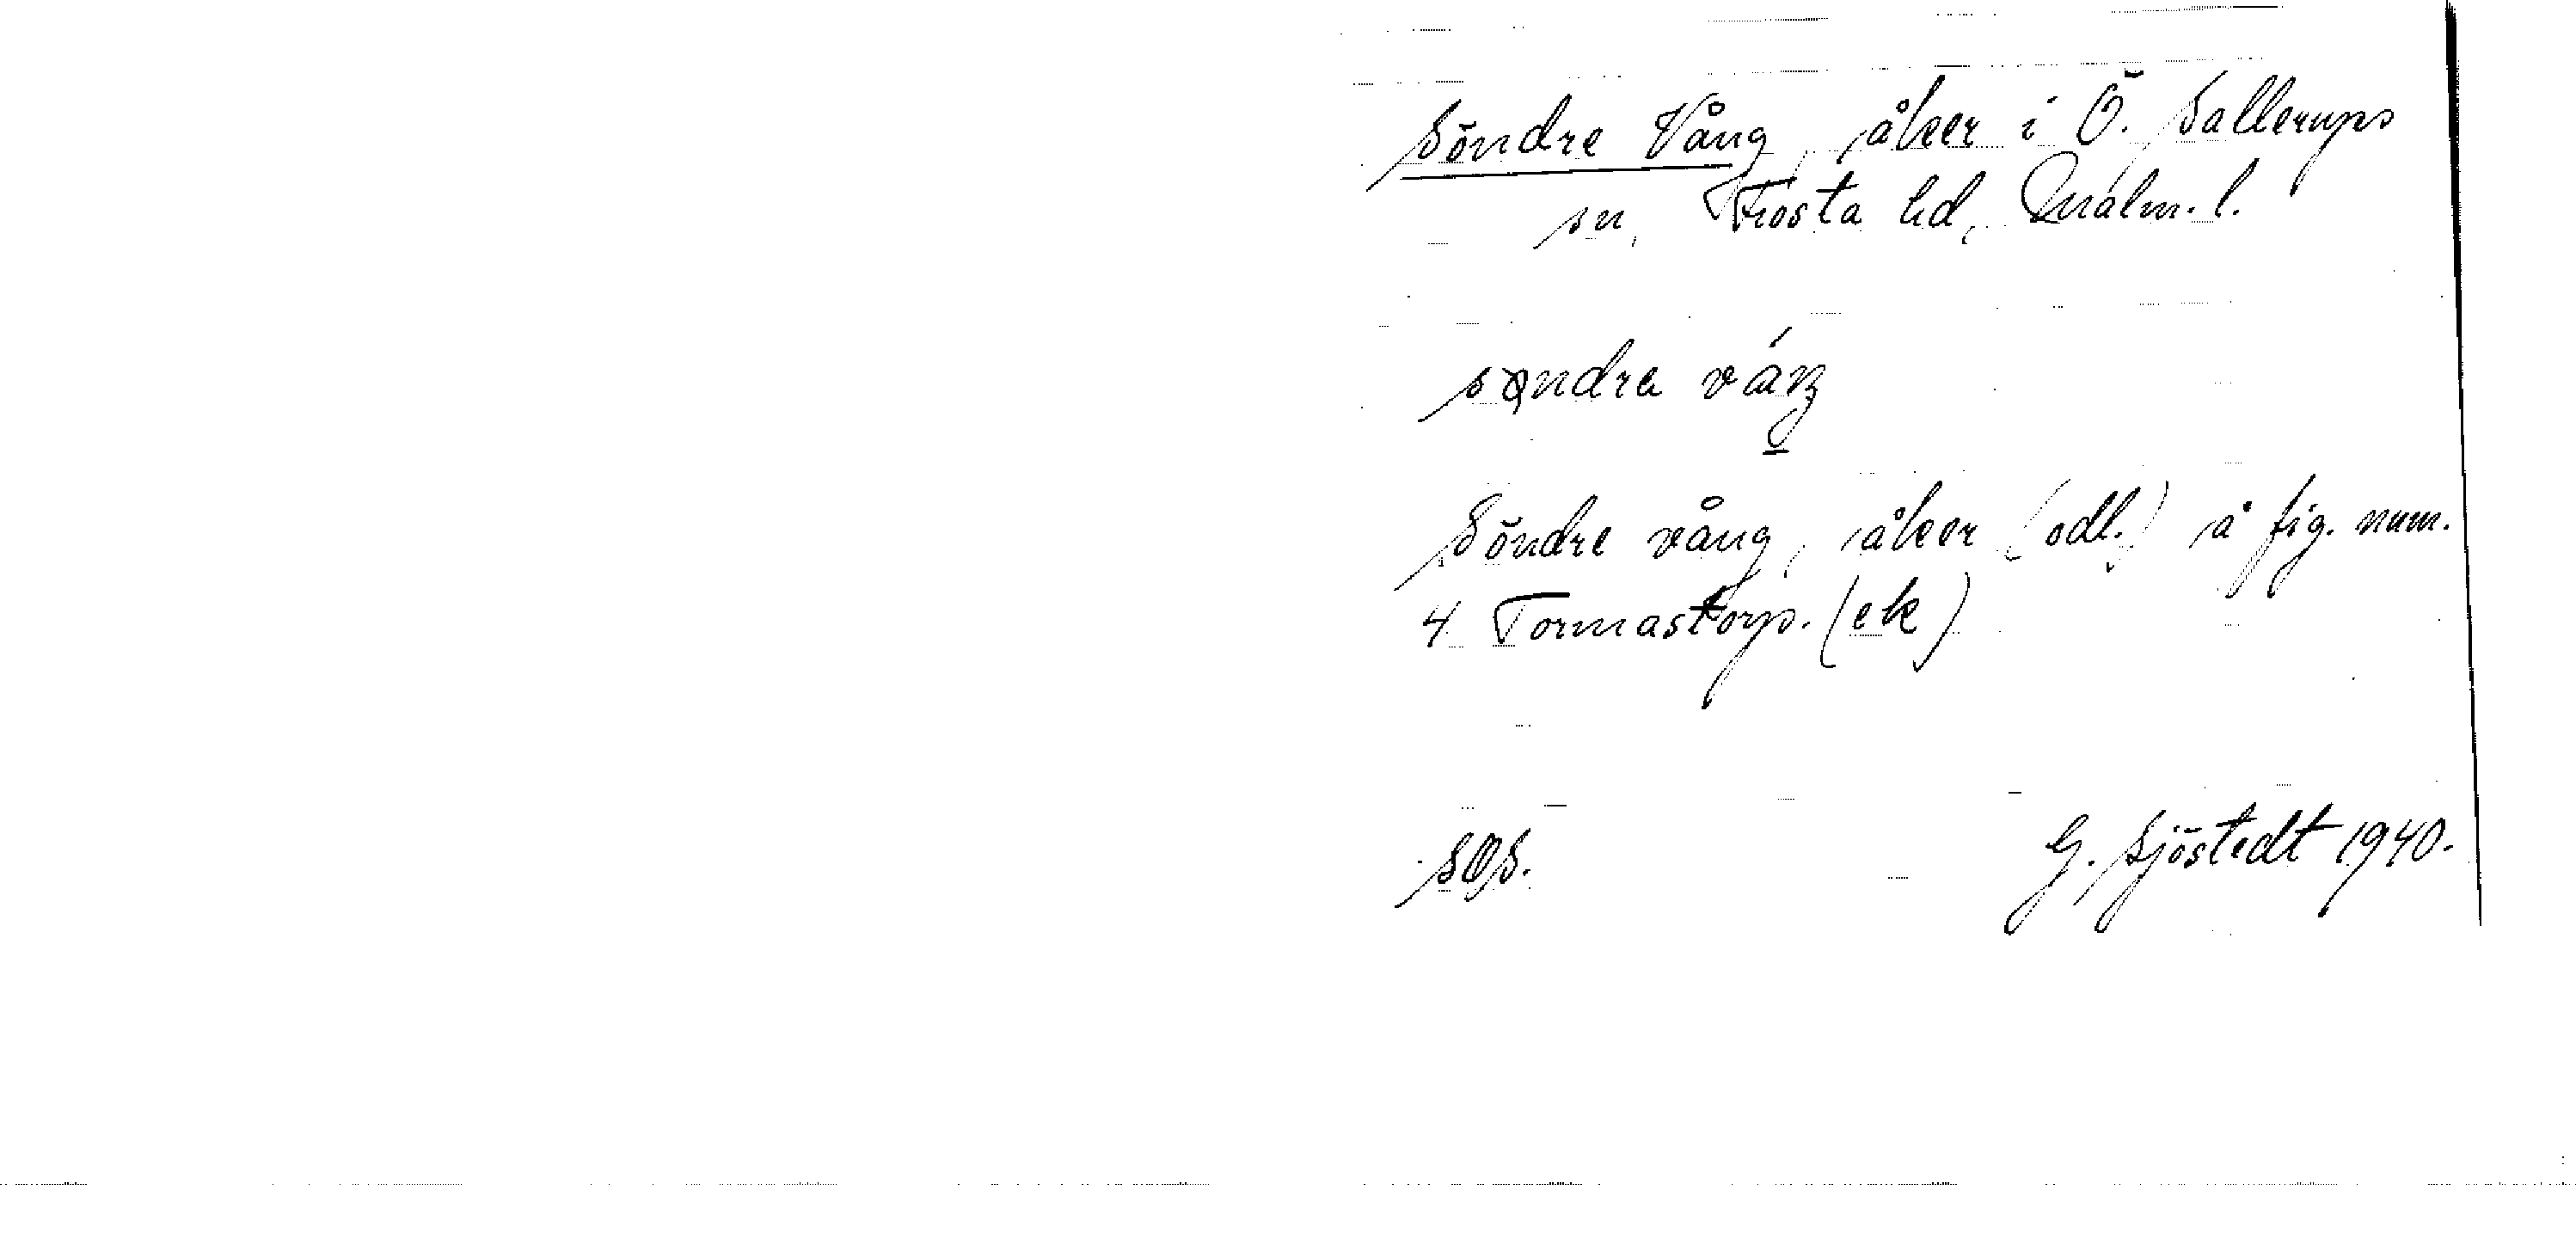 Söndre Vång, åker i Ö. Sallerups
sn, Frosta hd, Malm. l.
söndra váŋ
Söndre vång, åker (odl.) å fig. num.
4 Tormastorp. (ek)
SOS. G. Sjöstedt 1940.